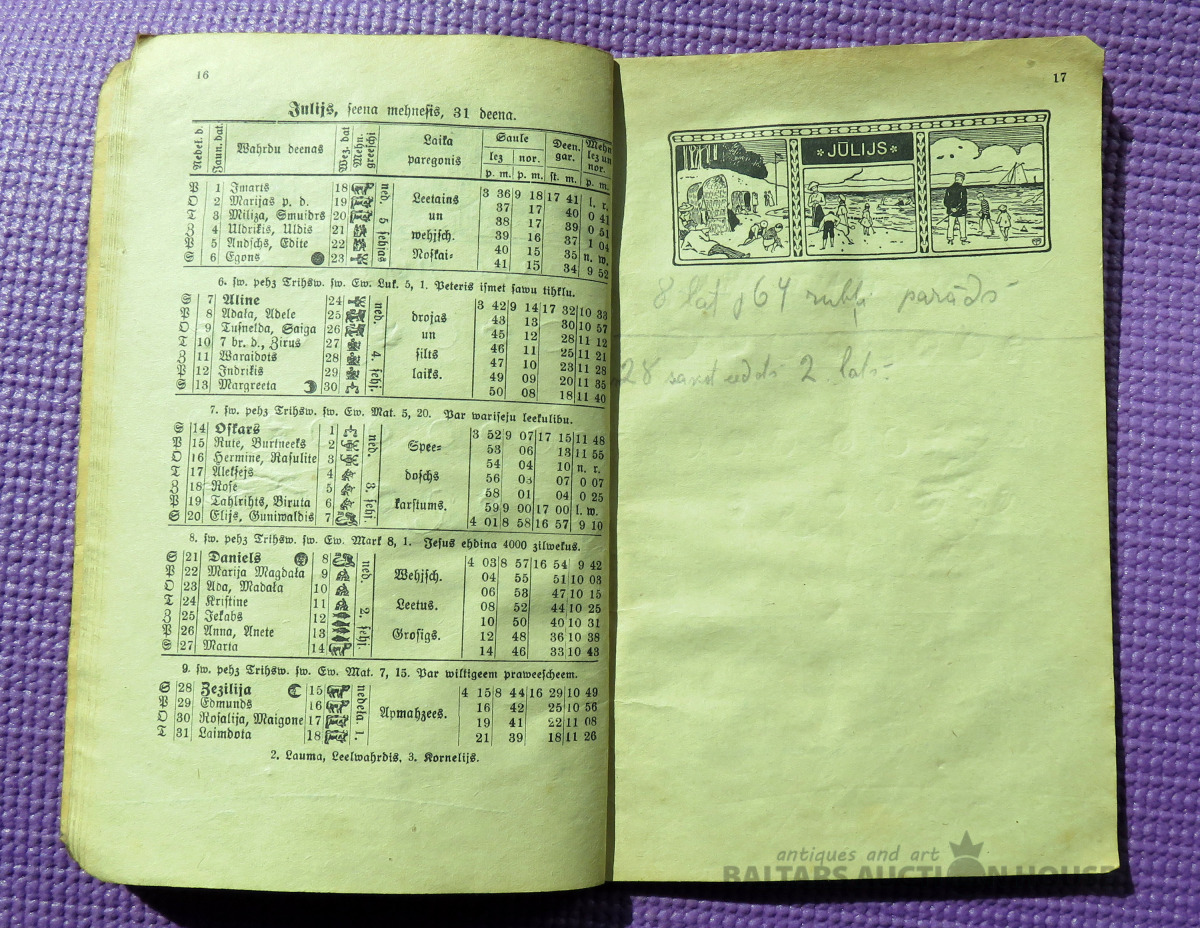 16
Julijs, seena mehnesis, 31 deena.
Nedeļ. d. Jaun. dat. Wahrdu deenas Wez. dat Mehn. Laika paregonis Saule lez nor. p. m. p. m. Deen. gar. st. m. Mehn lez un nor. p. m.
P 1 Imarts 18 neb. 5 Leetains 3 36 9 18 17 41 l. r.
O 2 Marijas p. d. 19 un 37 17 40 0 41
T 3 Miliza, Smuidrs 20 38 17 39 0 51
Z 4 Uldrikis, Uldis 21 wehjsch. 39 16 37 1 04
P 5 Andschs, Edite 22 Noskai- 40 15 35 n. w.
S 6 Egons 23 41 15 34 9 52
6. sw. pehz Trihsw. sw. Ew. Luk. 5, 1. Peteris ismet sawu tihklu.
S 7 Aline 24 neb. 4. drojas 3 42 9 14 17 32 10 33
P 8 Adaļa, Adele 25 43 13 30 10 57
O 9 Tusnelda, Saiga 26 un 45 12 28 11 12
T 10 7 br. d., Zirus 27 silts 46 11 25 11 21
Z 11 Waraidots 28 47 10 23 11 28
P 12 Indrikis 29 laiks. 49 09 20 11 35
S 13 Margreeta 30 50 08 18 11 40
7. sw. pehz Trihsw. sw. Ew. Mat. 5, 20. Par wariseju leekulibu.
S 14 Oskars 1 neb. 3. Spee- 3 52 9 07 17 15 11 48
P 15 Rute, Burtneeks 2 53 06 13 11 55
O 16 Hermine, Rasulite 3 54 04 10 n. r.
T 17 Aleksejs 4 doschs 56 03 07 0 07
Z 18 Rose 5 58 01 04 0 25
P 19 Tahlrihts, Biruta 6 karstums. 59 9 00 17 00 l. w.
S 20 Elijs, Guniwaldis 7 4 01 8 58 16 57 9 10
8. sw. pehz Trihsw. sw. Ew. Mark 8, 1. Jesus ehdina 4000 zilwekus.
S 21 Daniels 8 neb. 2. Wehjsch. 4 03 8 57 16 54 9 42
P 22 Marija Magdaļa 9 04 55 51 10 03
O 23 Ada, Madaļa 10 06 53 47 10 15
T 24 Kristine 11 Leetus. 08 52 44 10 25
Z 25 Jekabs 12 10 50 40 10 31
P 26 Anna, Anete 13 Grosigs. 12 48 36 10 38
S 27 Marta 14 14 46 33 10 43
9. sw. pehz Trihsw. sw. Ew. Mat. 7, 15. Par wiltigeem praweescheem.
S 28 Zezilija 15 nedeļa. 1. 4 15 8 44 16 29 10 49
P 29 Edmunds 16 Apmahzees. 16 42 25 10 56
O 30 Rosalija, Maigone 17 19 41 22 11 08
T 31 Laimdota 18 21 39 18 11 26
2. Lauma, Leelwahrdis, 3. Kornelijs.
17
JŪLIJS
8 lat 64 rubļi parāds
28 2 lats
antiques and art
BALTARS AUCTION HOUSE